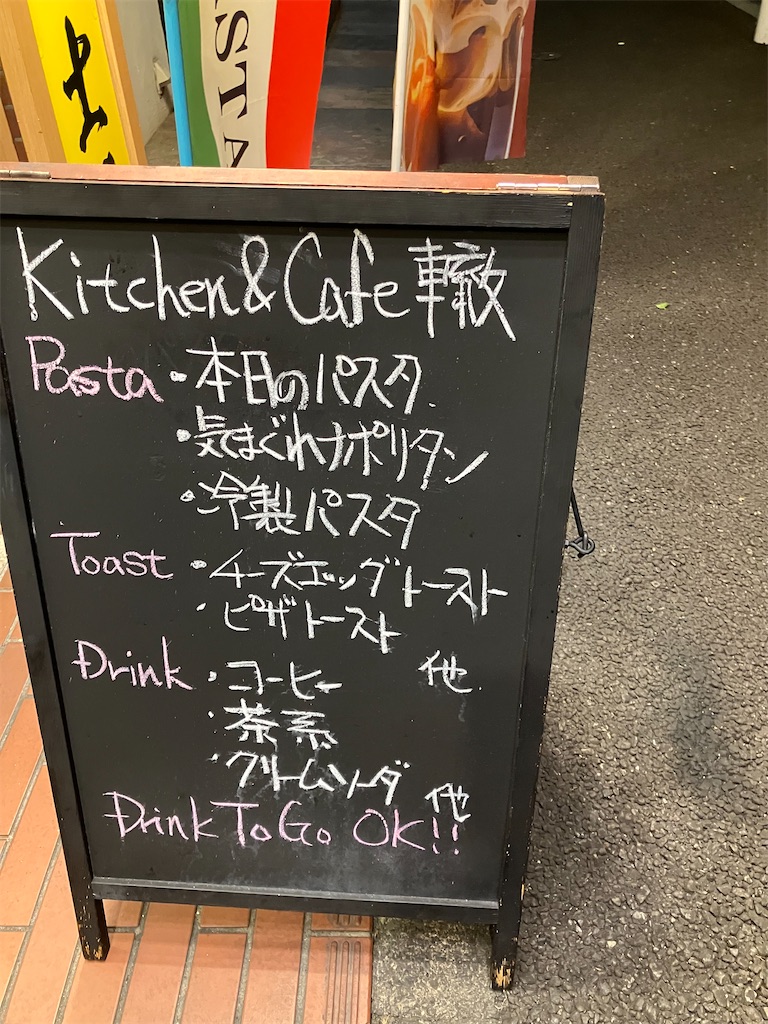 PASTA
Kitchen & Cafe 轍
Pasta ・本日のパスタ
・気まぐれナポリタン
・冷製パスタ
Toast ・チーズエッグトースト
・ピザトースト
他
Drink ・コーヒー
・茶系
・クリームソーダ 他
Drink To Go OK!!